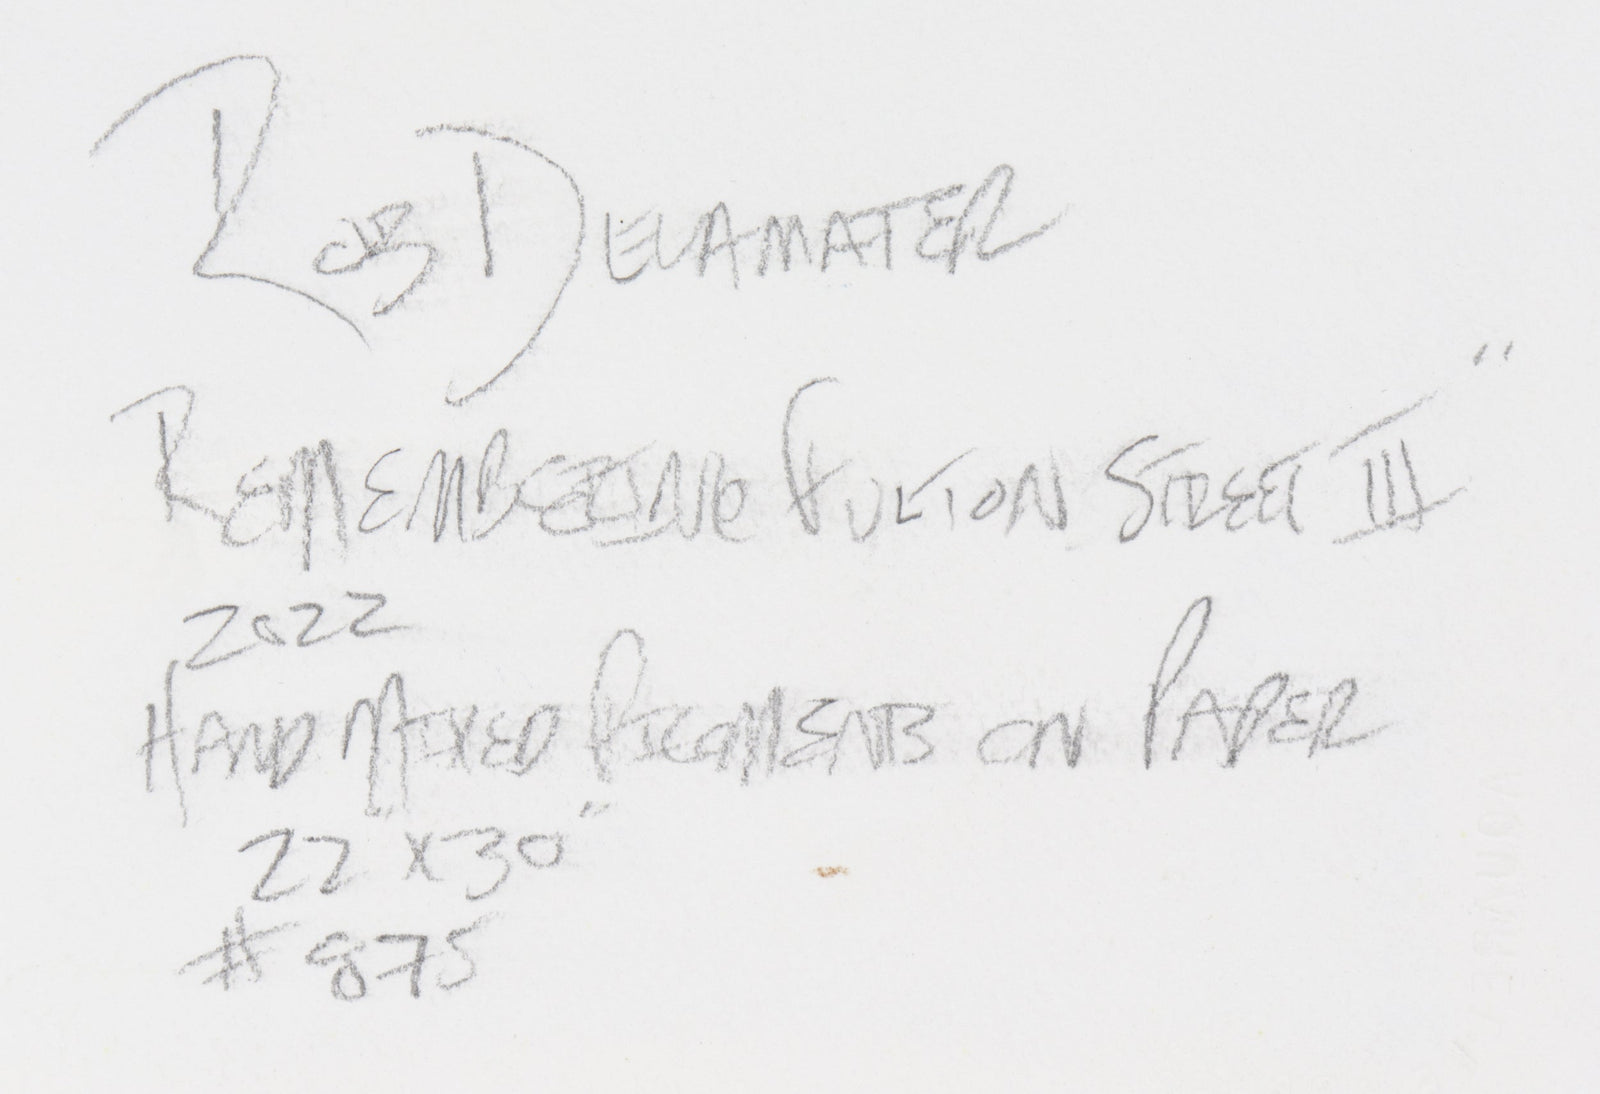 Rob Delamater
Remembering Fulton Street III"
2022
Hand Mixed Pigments on Paper
22 x 30"
#875